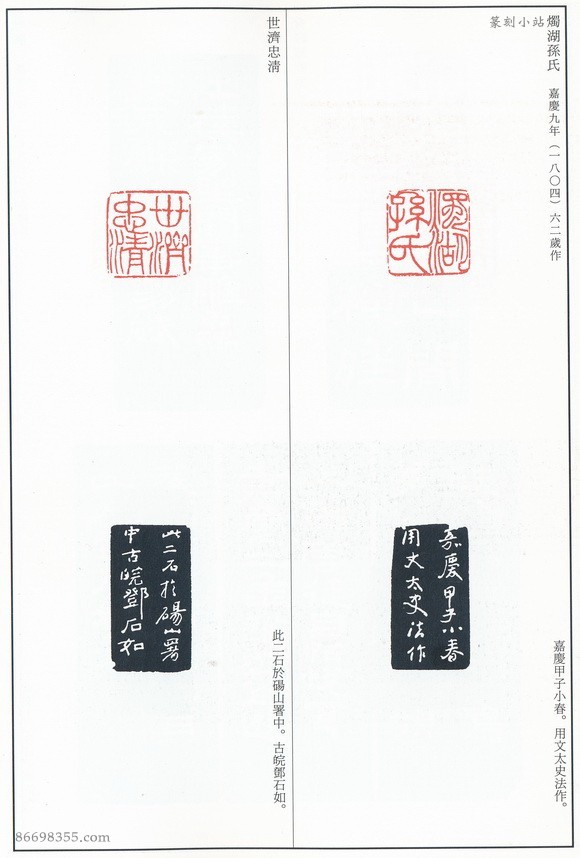 篆刻小站
燭湖孫氏 嘉慶九年（一八〇四）六二歲作
燭湖
孫氏
嘉慶甲子小春
用文太史法作
嘉慶甲子小春。用文太史法作。
世濟忠清
世濟
忠清
此二石於碭山署
中古皖鄧石如
此二石於碭山署中。古皖鄧石如。
86698355.com